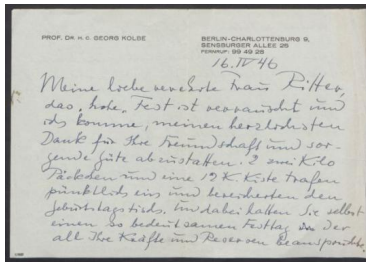 PROF. DR. H. C. GEORG KOLBE
BERLIN-CHARLOTTENBURG 9,
SENSBURGER ALLEE 26
FERNRUF: 99 49 28
16.IV 46
Meine liebe verehrte Frau Ritter,
das "hohe" Fest ist verrauscht und
ich komme, meinen herzlichsten
Dank für Ihre Freundschaft und sor-
gende Güte abzustatten. 2 zwei Kilo
Päckchen und eine 12 K. Kiste trafen
pünktlich ein und bereicherten den
Geburtstagstisch. Und dabei hatten Sie selbst
einen so bedeutsamen Festtag der
all Ihre Kräfte und Reserven beanspruchte.